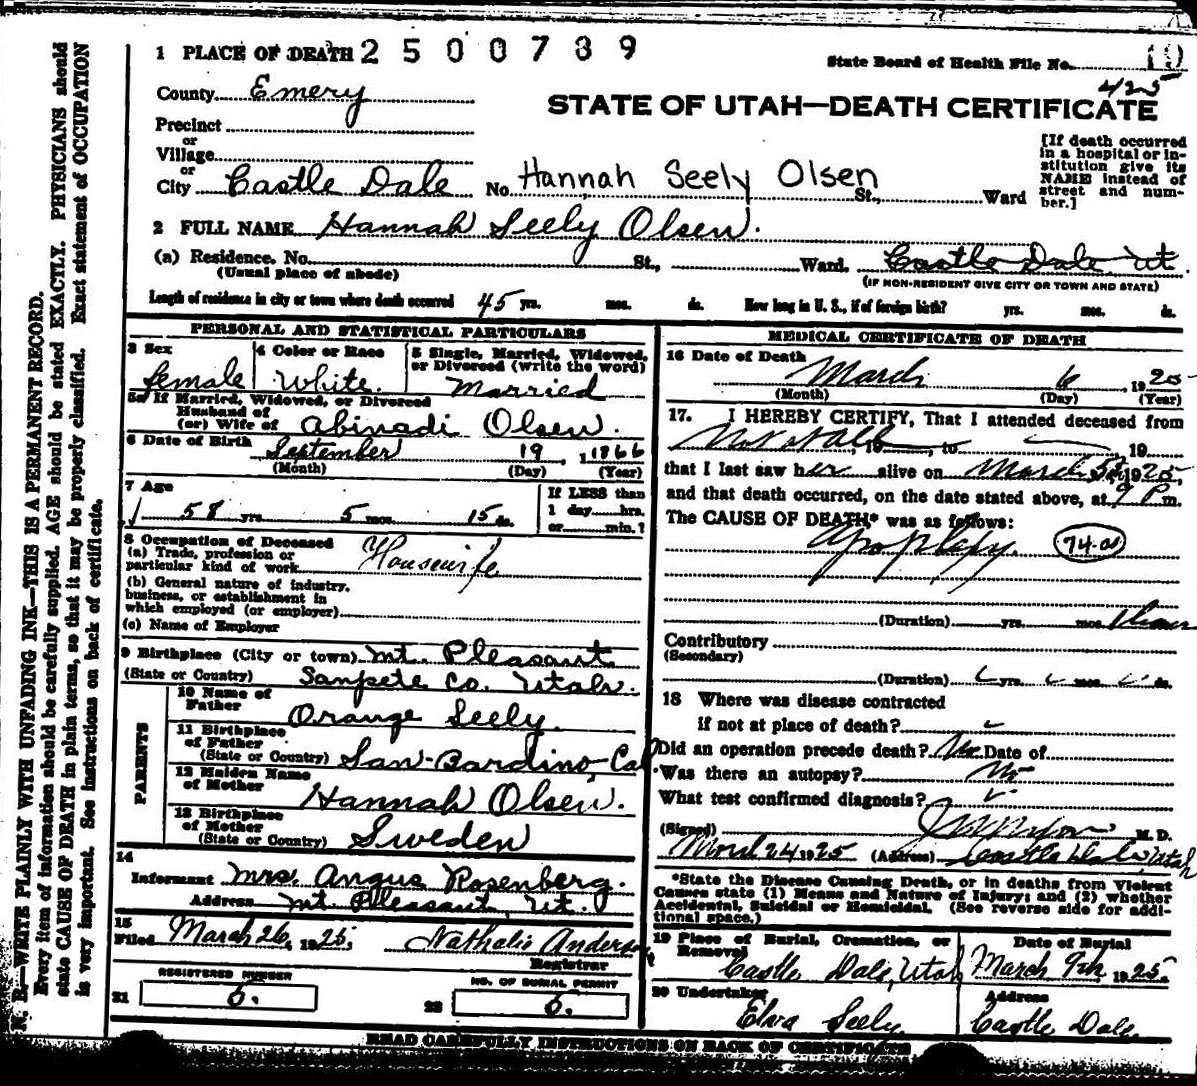 1 PLACE OF DEATH 2500789
State Board of Health File No. 19
425
County Emery
STATE OF UTAH—DEATH CERTIFICATE
Precinct
or
Village
or
City Castle Dale No. Hannah Seely Olsen St., Ward
[If death occurred in a hospital or institution give its NAME instead of street and number.]
2 FULL NAME Hannah Seely Olsen.
(a) Residence. No. St., Ward. Castle Dale Ut.
(Usual place of abode) (IF NON-RESIDENT GIVE CITY OR TOWN AND STATE)
Length of residence in city or town where death occurred 45 yrs. mos. ds. How long in U. S., if of foreign birth? yrs. mos. ds.
PERSONAL AND STATISTICAL PARTICULARS
3 Sex 4 Color or Race 5 Single, Married, Widowed, or Divorced (write the word)
female White. Married
5a If Married, Widowed, or Divorced
Husband of
(or) Wife of Abinadi Olsen.
6 Date of Birth September 19, 1866
(Month) (Day) (Year)
7 Age
58 yrs. 5 mos. 15 ds.
If LESS than
1 day hrs.
or min.?
8 Occupation of Deceased
(a) Trade, profession or
particular kind of work Housewife
(b) General nature of industry,
business, or establishment in
which employed (or employer)
(c) Name of Employer
9 Birthplace (City or town) Mt. Pleasant
(State or Country) Sanpete Co. Utah.
PARENTS
10 Name of
Father Orange Seely.
11 Birthplace
of Father
(State or Country) San-Bardino, Cal
12 Maiden Name
of Mother Hannah Olsen.
13 Birthplace
of Mother
(State or Country) Sweden
14
Informant Mrs. Angus Rosenberg.
Address Mt. Pleasant, Ut.
15
Filed March 26, 1925, Nathalie Anderson
Registrar
REGISTERED NUMBER
21 5.
NO. OF BURIAL PERMIT
22 5.
MEDICAL CERTIFICATE OF DEATH
16 Date of Death
March 6, 1925
(Month) (Day) (Year)
17. I HEREBY CERTIFY, That I attended deceased from
Not at all, 19 to 19
that I last saw her alive on March 5th, 1925,
and that death occurred, on the date stated above, at 9 P m.
The CAUSE OF DEATH* was as follows:
Apoplexy. 74-a
(Duration) yrs. mos.
Contributory
(Secondary)
(Duration) yrs. mos. ds.
18 Where was disease contracted
if not at place of death?
Did an operation precede death? No Date of
Was there an autopsy? No
What test confirmed diagnosis?
(Signed) M. D.
March 24 1925 (Address) Castle Dale, Utah
*State the Disease Causing Death, or in deaths from Violent Causes state (1) Means and Nature of Injury; and (2) whether Accidental, Suicidal or Homicidal. (See reverse side for additional space.)
19 Place of Burial, Cremation, or Removal Date of Burial
Castle Dale, Utah March 9th, 1925.
20 Undertaker Address
Elva Seely Castle Dale.
READ CAREFULLY INSTRUCTIONS ON BACK OF CERTIFICATE
N. B.—WRITE PLAINLY WITH UNFADING INK—THIS IS A PERMANENT RECORD.
Every item of information should be carefully supplied. AGE should be stated EXACTLY. PHYSICIANS should
state CAUSE OF DEATH in plain terms, so that it may be properly classified. Exact statement of OCCUPATION
is very important. See instructions on back of certificate.